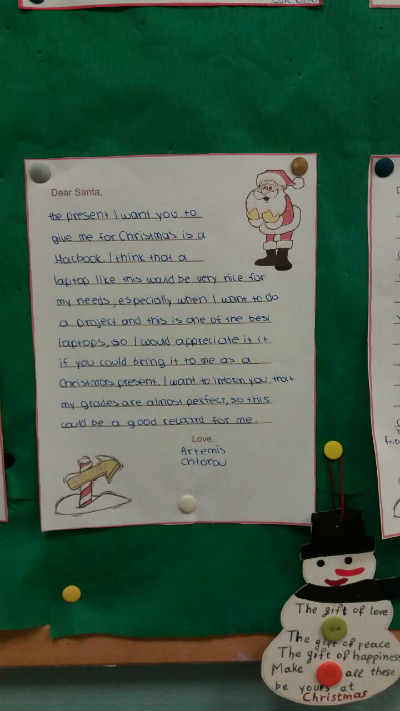 Dear Santa,
the present I want you to
give me for Christmas is a
Macbook. I think that a
laptop like this would be very nice for
my needs, especially when I want to do
a project and this is one of the best
laptops, so I would appreciate it it
if you could bring it to me as a
Christmas present. I want to inform you that
my grades are almost perfect, so this
could be a good reward for me.
Love,
Artemis
Chlorou
The gift of love
The gift of peace
The gift of happiness
Make all these
be yours at
Christmas